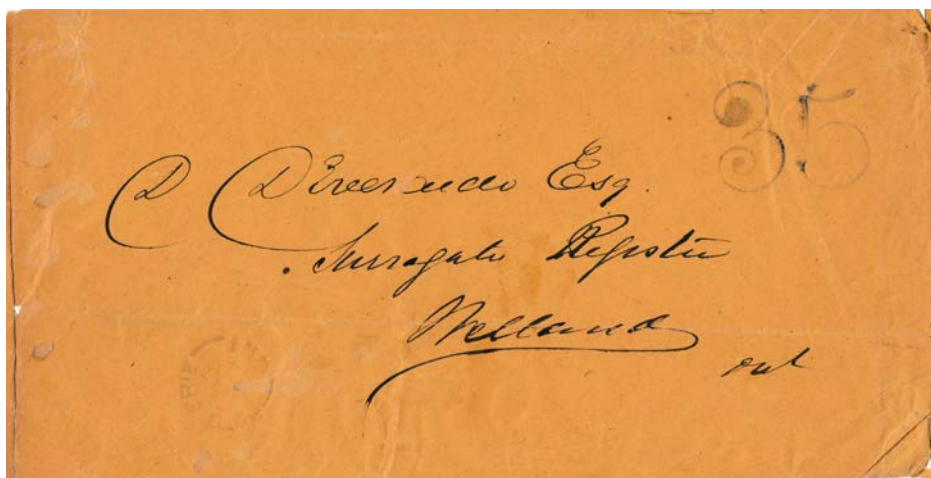 35
D D'Everardo Esq.
Surrogate Register
Welland
Ont